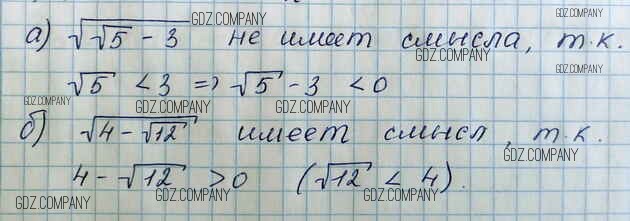 а) √(√5 - 3) не имеет смысла, т.к.
√5 < 3 => √5 - 3 < 0
б) √(4 - √12) имеет смысл, т.к.
4 - √12 > 0 (√12 < 4).
GDZ.COMPANY
GDZ.COMPANY
GDZ.COMPANY
GDZ.COMPANY
GDZ.COMPANY
GDZ.COMPANY
GDZ.COMPANY
GDZ.COMPANY
GDZ.COMPANY
GDZ.COMPANY
GDZ.COMPANY